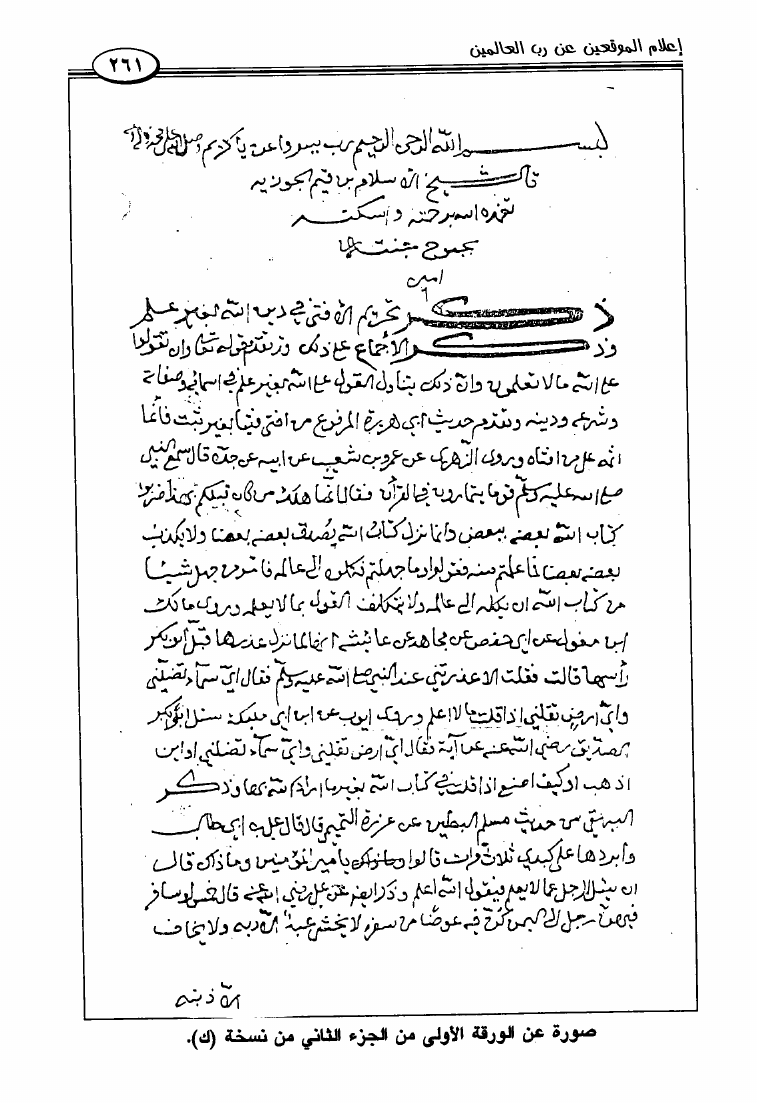 إعلام الموقعين عن رب العالمين
٢٦١
بسم الله الرحمن الرحيم رب يسر واعن يا كريم
قال شيخ الاسلام بن قيم الجوزيه
تغمده الله برحمته واسكنه
بحبوح جنته
امين
ذكر تحريم الافتى في دين الله بغير علم
وذكر الاجماع على ذلك وقد تقدم قوله تعالى وان تقولوا
على الله ما لا تعلمون وان ذلك يتناول القول على الله بغير علم في اسمائه وصفاته
وشرعه ودينه وتقدم حديث ابي هريرة المرفوع من افتى فتيا بغير ثبت فانما
اثمه على من افتاه وروى الزهرى عن عمرو بن شعيب عن ابيه عن جده قال سمع النبي
صلى الله عليه وسلم قوما يتمارون في القرآن فقال انما هلك من كان قبلكم بهذا ضربوا
كتاب الله بعضه ببعض وانما نزل كتاب الله يصدق بعضه بعضا ولا يكذب
بعضه بعضا فما علمتم منه فقولوا وما جهلتم فكلوه الى عالمه فامر من جهل شيئا
من كتاب الله ان يكله الى عالمه ولا يتكلف القول بما لا يعلمه وروى مالك
ابن مغول عن ابي حفص عن مجاهد عن عايشه انها لما نزل عذرها قبل ابو بكر
رأسها قالت فقلت الا عذرتني عند النبي صلى الله عليه وسلم فقال اي سماء تضلني
واي ارض تقلني اذا قلت ما لا اعلم وروى ايوب عن ابن ابي مليكة سئل ابو بكر
الصديق رضي الله عنه عن آية فقال اي ارض تقلني واي سماء تضلني او اين
اذهب او كيف اصنع اذا قلت في كتاب الله بغير ما اراد الله بها وذكر
البيهقي من حديث مسلم البطين عن عزرة التميمي قال قال علي بن ابي طالب
وابردها على كبدي ثلاث مرات قالوا وما ذلك يا امير المؤمنين وما ذاك قال
ان يسئل الرجل عما لا يعلم فيقول الله اعلم وذكر ايضا عن علي رضي الله عنه قال خمس لو سافر
فيهن رجل الى اليمن كن فيه عوضا من سفره لا يخشى عبد الا ربه ولا يخاف
الا ذنبه
صورة عن الورقة الأولى من الجزء الثاني من نسخة (ك).